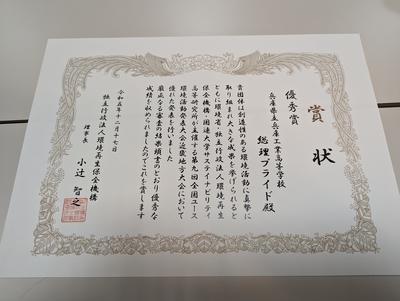 賞状
優秀賞
兵庫県立兵庫工業高等学校
総理プライド殿
貴団体は創造性のある環境活動に真摯に
取り組まれ大きな成果を挙げられると
ともに環境省・独立行政法人環境再生
保全機構・国連大学サステイナビリティ
高等研究所が主催する第九回全国ユース
環境活動発表大会近畿地方大会において
優れた発表を行いました
厳正なる審査の結果頭書のとおり優秀な
成績を収められましたのでこれを賞します
令和五年十二月十七日
独立行政法人環境再生保全機構
理事長 小辻智之